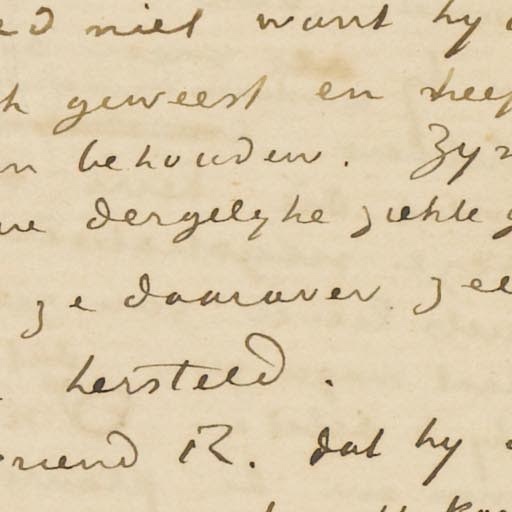 niet want hy
geweest en heef
behouden. Zyn
dergelyke ziekte g
ze daarover zee
hersteld.
riend R. dat hy